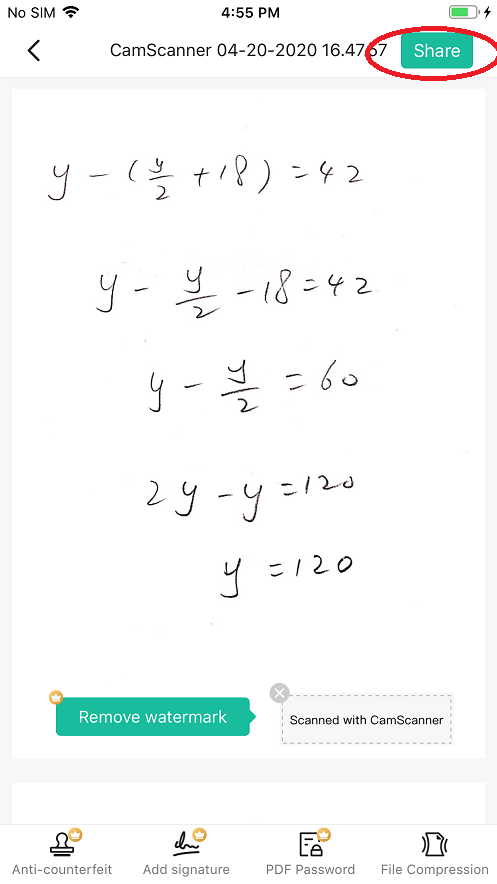 No SIM 4:55 PM
CamScanner 04-20-2020 16.47.57 Share
y - (y/2 + 18) = 42
y - y/2 - 18 = 42
y - y/2 = 60
2y - y = 120
y = 120
Remove watermark
Scanned with CamScanner
Anti-counterfeit Add signature PDF Password File Compression